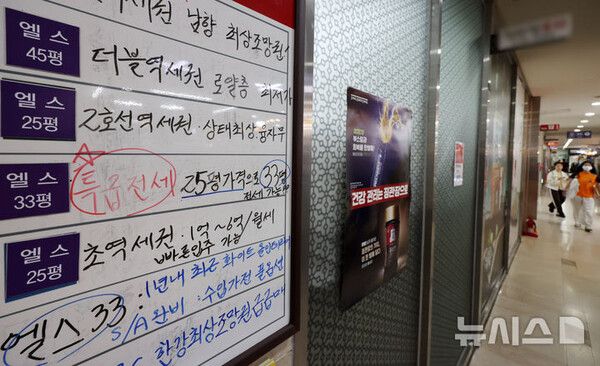 역세권 남향 최상조망권
엘스
45평
더블역세권 로얄층
엘스
25평
2호선역세권·상태최상·융자무
엘스
33평
특급전세
25평가격으로 33평
전세 가능
엘스
25평
초역세권·1억~6억/월세
빠른입주 가능
엘스 33
:1년내 최근 화이트
S/A완비·수입가전 풀옵션
한강최상조망원급급매
건강 관리는 정관장으로
뉴시스